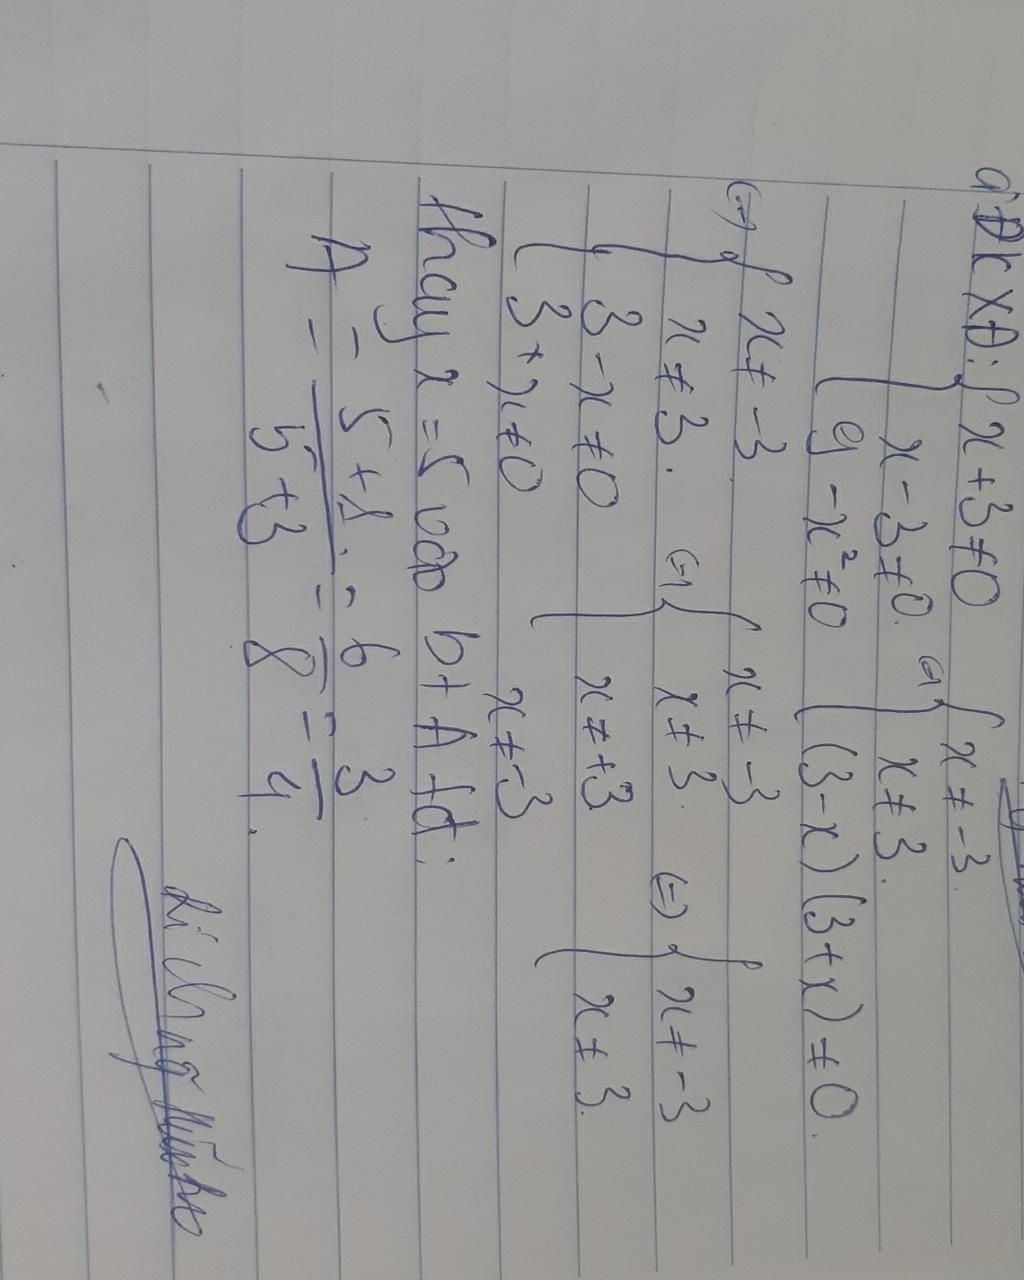 a) ĐKXĐ: { x + 3 ≠ 0
x - 3 ≠ 0
9 - x² ≠ 0
(=) { x ≠ -3.
x ≠ 3.
(3 - x)(3 + x) ≠ 0.
(=) { x ≠ -3
x ≠ 3.
3 - x ≠ 0
3 + x ≠ 0
(=) { x ≠ -3
x ≠ 3.
x ≠ +3
x ≠ -3
(=) { x ≠ -3
x ≠ 3.
thay x = 5 vào bt A tđ:
A = 5 + 1 / 5 + 3 = 6 / 8 = 3 / 4.